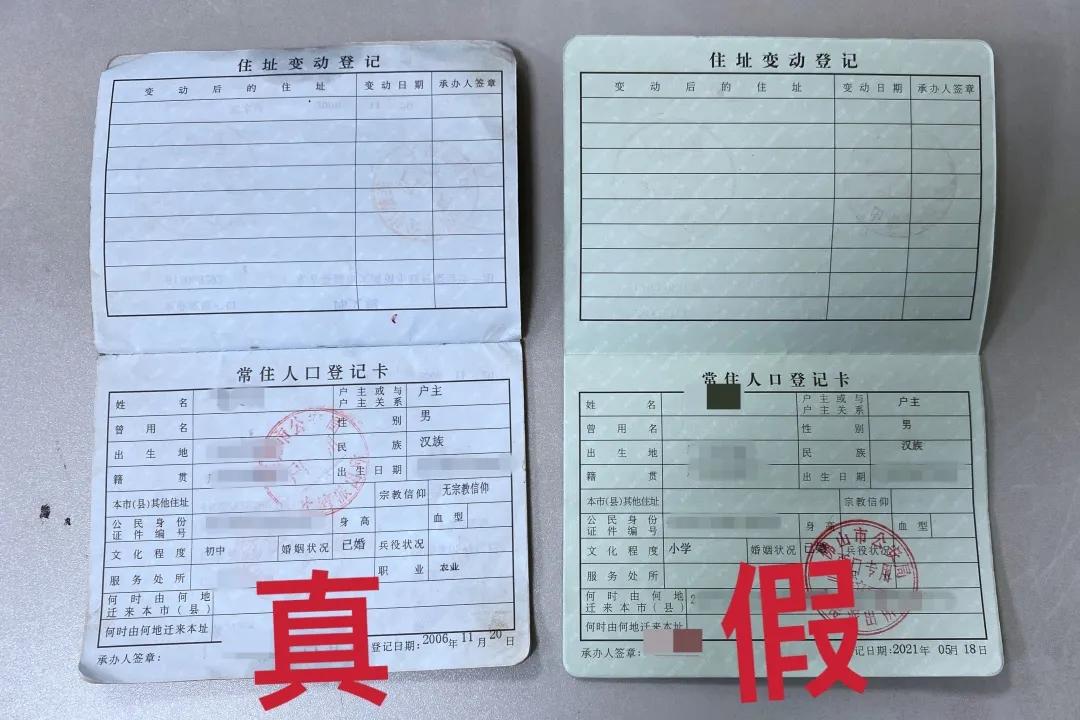 住址变动登记
变动后的住址 变动日期 承办人签章
常住人口登记卡
姓名 户主或与户主关系 户主
曾用名 性别 男
出生地 民族 汉族
籍贯 出生日期
本市(县)其他住址 宗教信仰 无宗教信仰
公民身份证件编号 身高 血型
文化程度 初中 婚姻状况 已婚 兵役状况
服务处所 职业 农业
何时由何地迁来本市(县)
何时由何地迁来本址
承办人签章: 登记日期:2006年11月20日
真
住址变动登记
变动后的住址 变动日期 承办人签章
常住人口登记卡
姓名 户主或与户主关系 户主
曾用名 性别 男
出生地 民族 汉族
籍贯 出生日期
本市(县)其他住址 宗教信仰
公民身份证件编号 身高 血型
文化程度 小学 婚姻状况 已婚 兵役状况
服务处所
何时由何地迁来本市(县)
何时由何地迁来本址
承办人签章: 记日期:2021年05月18日
佛山市公安局
户口专用
假